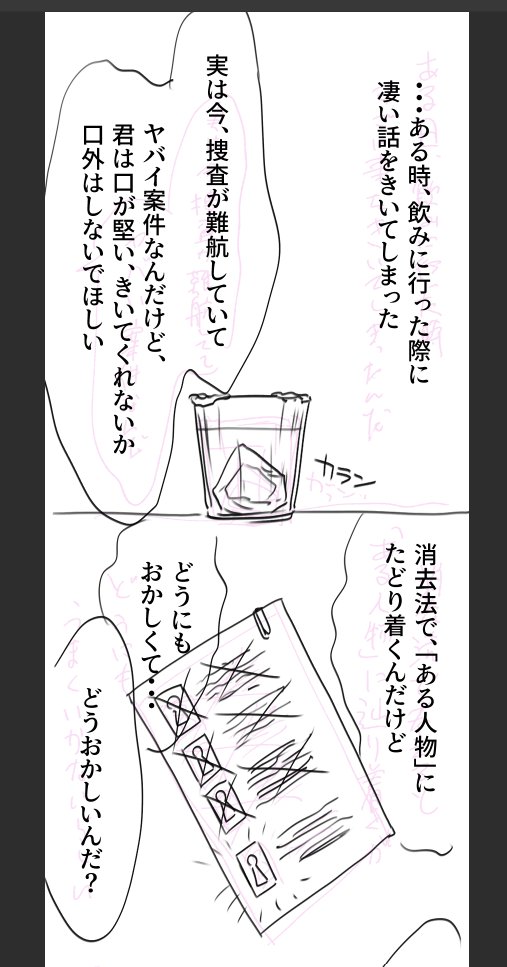 ・・・ある時、飲みに行った際に
凄い話をきいてしまった
実は今、捜査が難航していて
ヤバイ案件なんだけど、
君は口が堅い、きいてくれないか
口外はしないでほしい
カラン
消去法で、「ある人物」に
たどり着くんだけど
どうにも
おかしくて・・・
どうおかしいんだ？